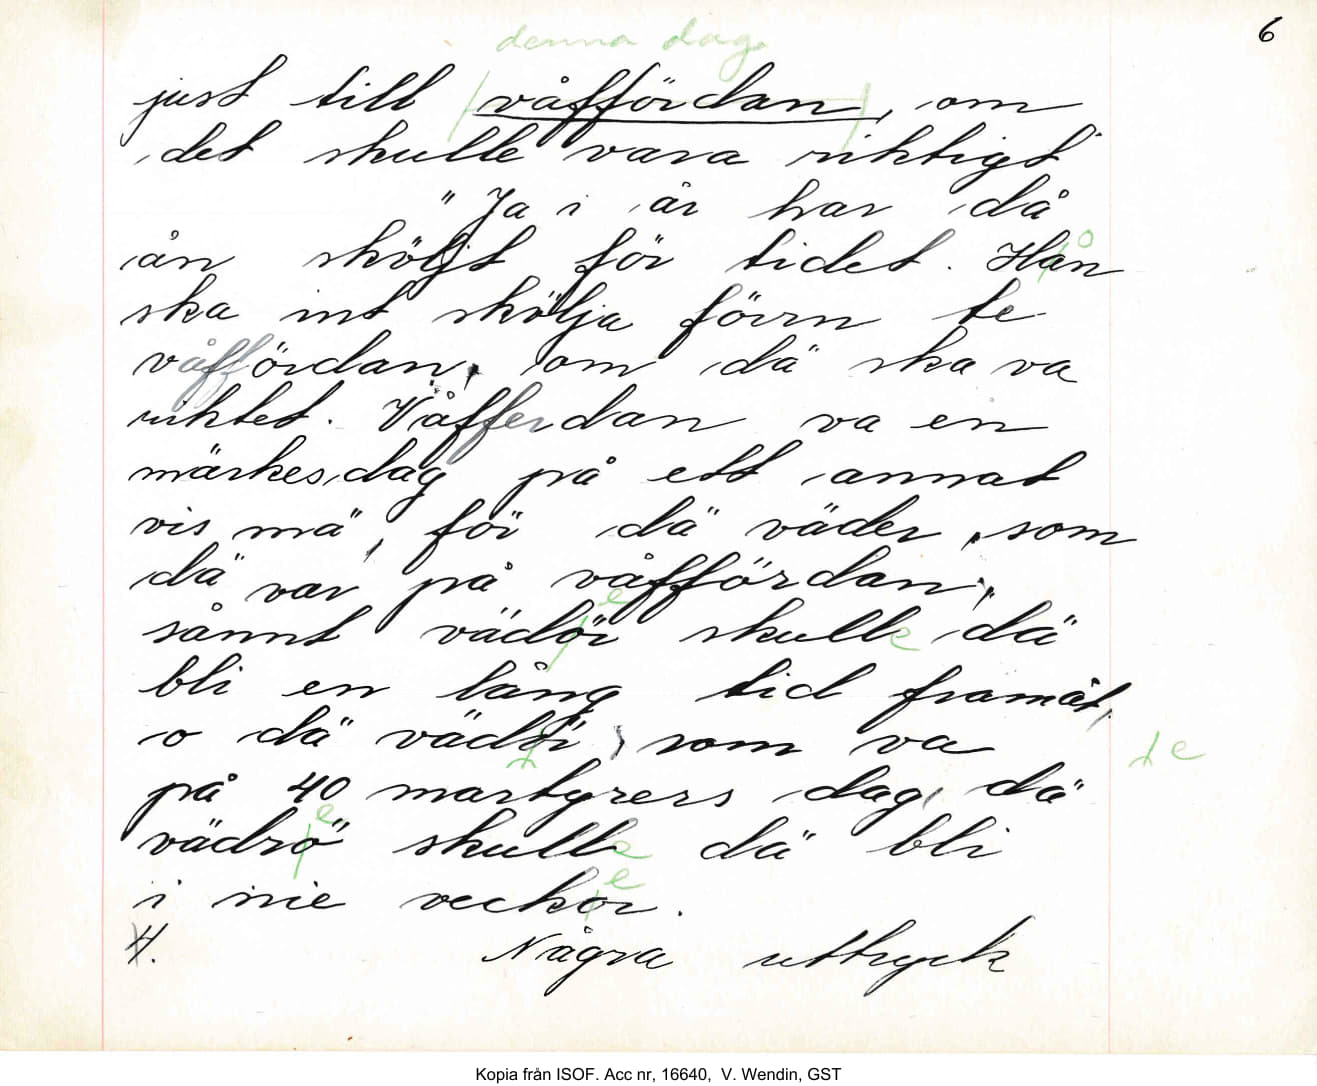 6
denna dag
just till våffördan, om
det skulle vara riktigt
"Ja i år har då
ån sköljt för tidet. Hån
ska int skölja förrn te
våffördan, om dä ska va
riktet. Våfferdan va en
märkesdag på ett annat
vis mä, för dä väder, som
dä var på våffördan,
sånnt vädör skulle dä
bli en lång tid framåt,
o dä vädör, som va
på 40 martyrers dag, dä
vädrö skulle dä bli
i nie veckor.
Några uttryck
Kopia från ISOF. Acc nr, 16640, V. Wendin, GST